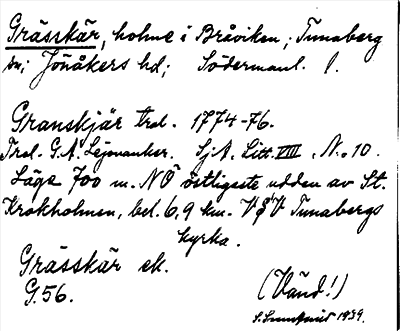 Grässkär, holme i Bråviken; Tunaberg
sn; Jönåkers hd; Södermanl. l.
Granskjär trol. 1774-76.
Trol. G.A. Lejonanker. Sj.A. Litt. VIII. N:o 10.
Läge 700 m. NÖ östligaste udden av St.
Krokholmen, bel. 6,9 km. VSV Tunabergs
kyrka.
Grässkär ek.
G.56.
(Vänd!)
1939.